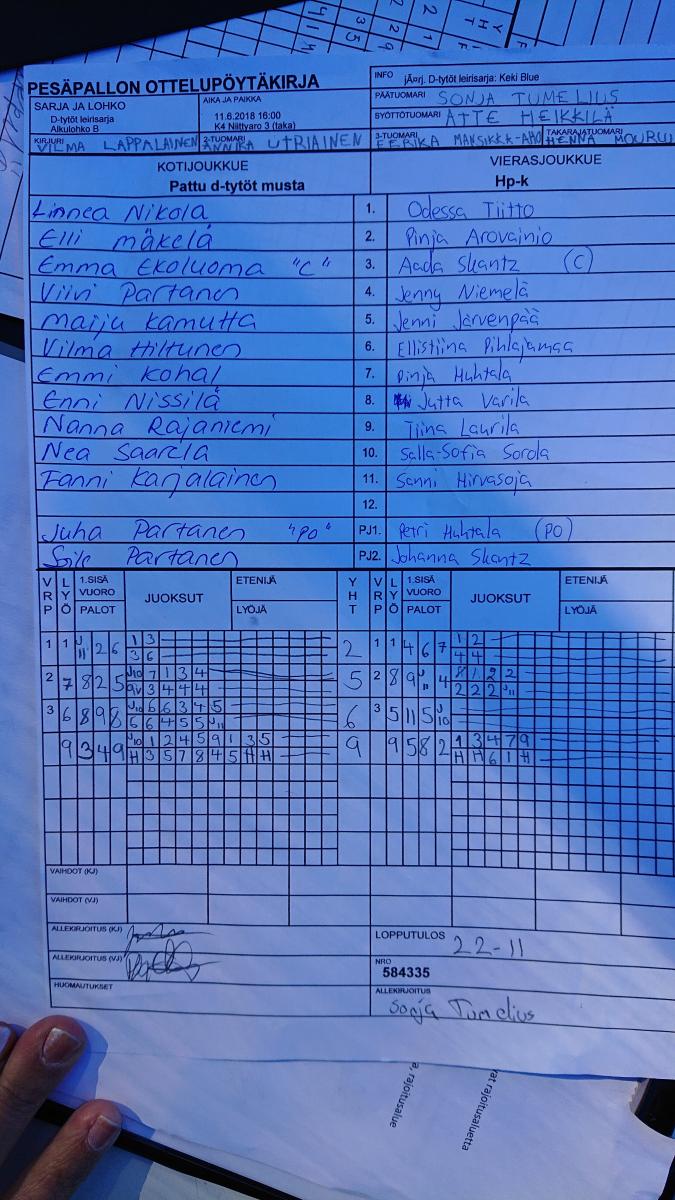 PESÄPALLON OTTELUPÖYTÄKIRJA
INFO jÄ¤rj. D-tytöt leirisarja: Keki Blue
SARJA JA LOHKO
D-tytöt leirisarja
Alkulohko B
AIKA JA PAIKKA
11.6.2018 16:00
K4 Niittyaro 3 (taka)
PÄÄTUOMARI SONJA TUMELIUS
SYÖTTÖTUOMARI ATTE HEIKKILÄ
KIRJURI VILMA LAPPALAINEN 2-TUOMARI ANNIKA UTRIAINEN 3-TUOMARI EERIKA MANSIKKA-AHO TAKARAJATUOMARI HENNA
KOTIJOUKKUE VIERASJOUKKUE
Pattu d-tytöt musta Hp-k
Linnea Nikola 1. Odessa Tiitto
Elli mäkelä 2. Pinja Arovainio
Emma Ekoluoma "C" 3. Aada Skantz (C)
Viivi Partanen 4. Jenny Niemelä
Maiju Kamutta 5. Jenni Järvenpää
Vilma Hiltunen 6. Ellistiina Pihlajamaa
Emmi Kohal 7. Pinja Huhtala
Enni Nissilä 8. Jutta Varila
Nanna Rajaniemi 9. Tiina Laurila
Nea Saarela 10. Salla-Sofia Sorola
Fanni Karjalainen 11. Sanni Hirvasoja
12.
Juha Partanen "PO" PJ1. Petri Huhtala (PO)
Partanen PJ2. Johanna Skantz
VRP LYÖ 1.SISÄ VUORO PALOT JUOKSUT ETENIJÄ LYÖJÄ YHT VRP LYÖ 1.SISÄ VUORO PALOT JUOKSUT ETENIJÄ LYÖJÄ
1 1 J11 2 6 1 3 2 1 1 4 6 7 1 2
3 6 4 4
2 7 8 2 5 J10 7 1 3 4 5 2 8 9 J11 4 8 1 2 2
9V 3 4 4 4 2 2 2 J11
3 6 8 9 8 J10 6 6 3 4 5 6 3 5 11 5 J10
6 6 4 5 5 J11
9 3 4 9 J10 1 2 4 5 9 1 3 5 9 9 5 8 2 1 3 4 7 9
H 3 5 7 8 4 5 H H H H 6 1 H
VAIHDOT (KJ)
VAIHDOT (VJ)
ALLEKIRJOITUS (KJ)
LOPPUTULOS 22-11
ALLEKIRJOITUS (VJ)
NRO
584335
HUOMAUTUKSET
ALLEKIRJOITUS
Sonja Tumelius
a, rajoitusalue
vat rajoitusaluetta